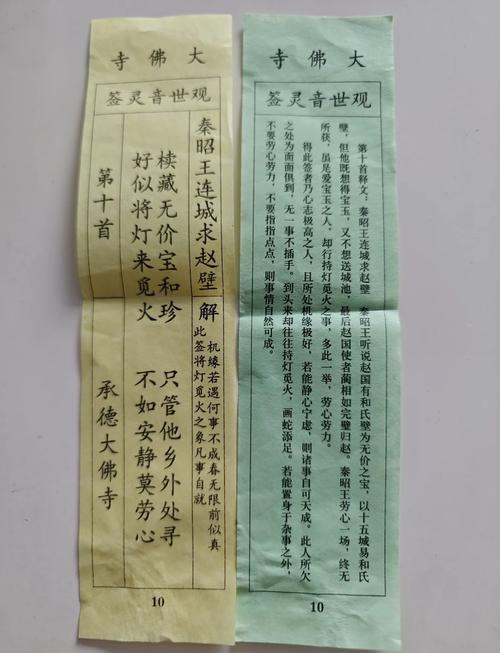 大佛寺
观世音灵签
秦昭王连城求赵壁
椟藏无价宝和珍 只管他乡外处寻
好似将灯来觅火 不如安静莫劳心
第十首 承德大佛寺
解
机缘若遇何事不成春无限前似真
此签将灯觅火之象凡事自就
10
大佛寺
观世音灵签
第十首释文：秦昭王连城求赵壁 秦昭王听说赵国有和氏壁为无价之宝，以十五城易和氏
壁，但他既想得宝玉，又不想送城池，最后赵国使者蔺相如完壁归赵。秦昭王劳心一场，终无
所获，虽是爱宝玉之人，却行持灯觅火之事，多此一举，劳心劳力。
得此签者乃心志极高之人，且所处机缘极好，若能静心宁虑，则诸事自可天成。此人所欠
之处为面面俱到，无一事不插手。到头来却往往持灯觅火，画蛇添足。若能置身于杂事之外，
不要劳心劳力，不要指指点点，则事情自然可成。
10